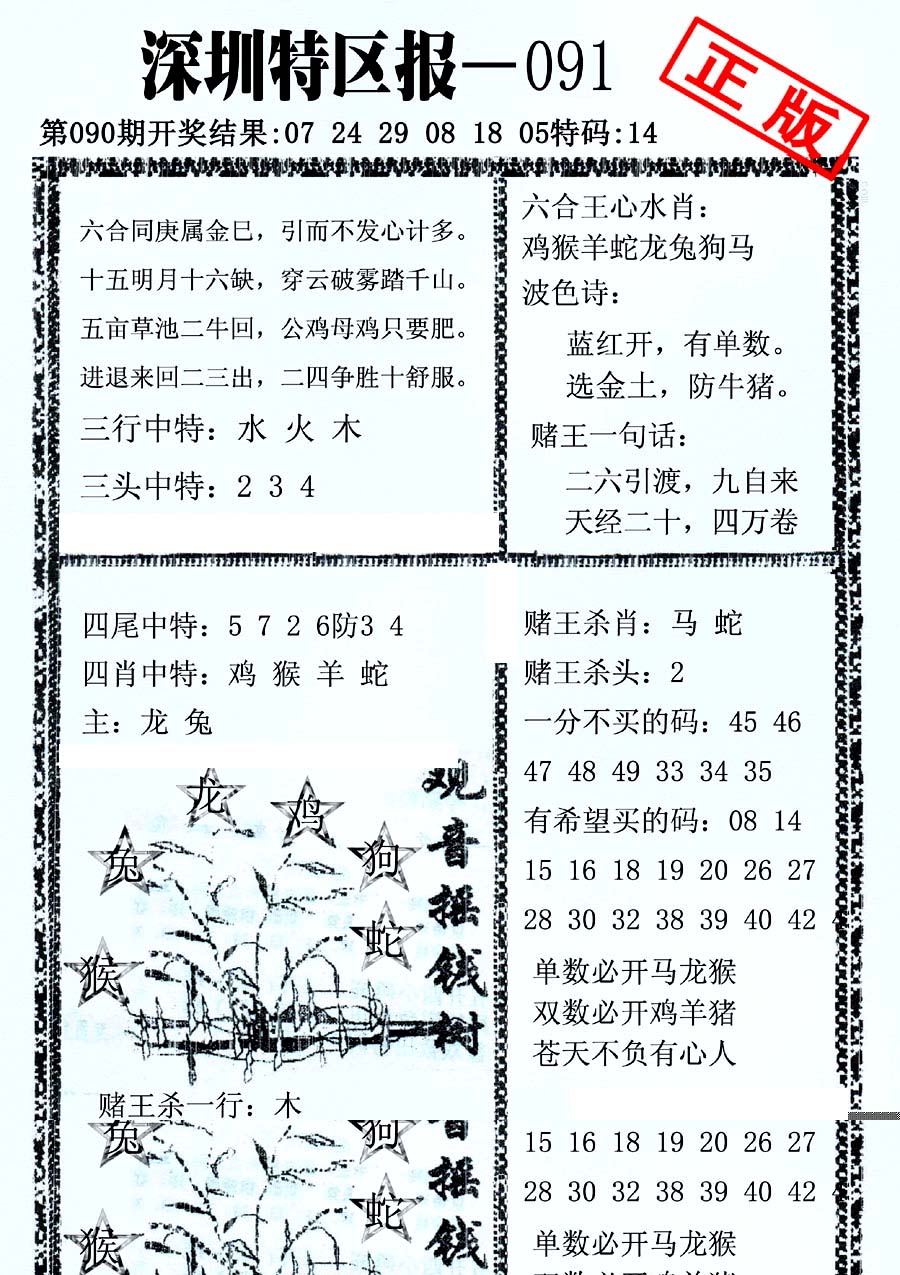 深圳特区报—091
正版
第090期开奖结果:07 24 29 08 18 05特码:14
六合同庚属金巳，引而不发心计多。
十五明月十六缺，穿云破雾踏千山。
五亩草池二牛回，公鸡母鸡只要肥。
进退来回二三出，二四争胜十舒服。
三行中特：水 火 木
三头中特：2 3 4
六合王心水肖：
鸡猴羊蛇龙兔狗马
波色诗：
蓝红开，有单数。
选金土，防牛猪。
赌王一句话：
二六引渡，九自来
天经二十，四万卷
四尾中特：5 7 2 6防3 4
四肖中特：鸡 猴 羊 蛇
主：龙 兔
龙
鸡
兔
狗
蛇
猴
观音摇钱树
赌王杀一行：木
兔
狗
蛇
猴
音摇钱
赌王杀肖：马 蛇
赌王杀头：2
一分不买的码：45 46
47 48 49 33 34 35
有希望买的码：08 14
15 16 18 19 20 26 27
28 30 32 38 39 40 42
单数必开马龙猴
双数必开鸡羊猪
苍天不负有心人
15 16 18 19 20 26 27
28 30 32 38 39 40 42
单数必开马龙猴